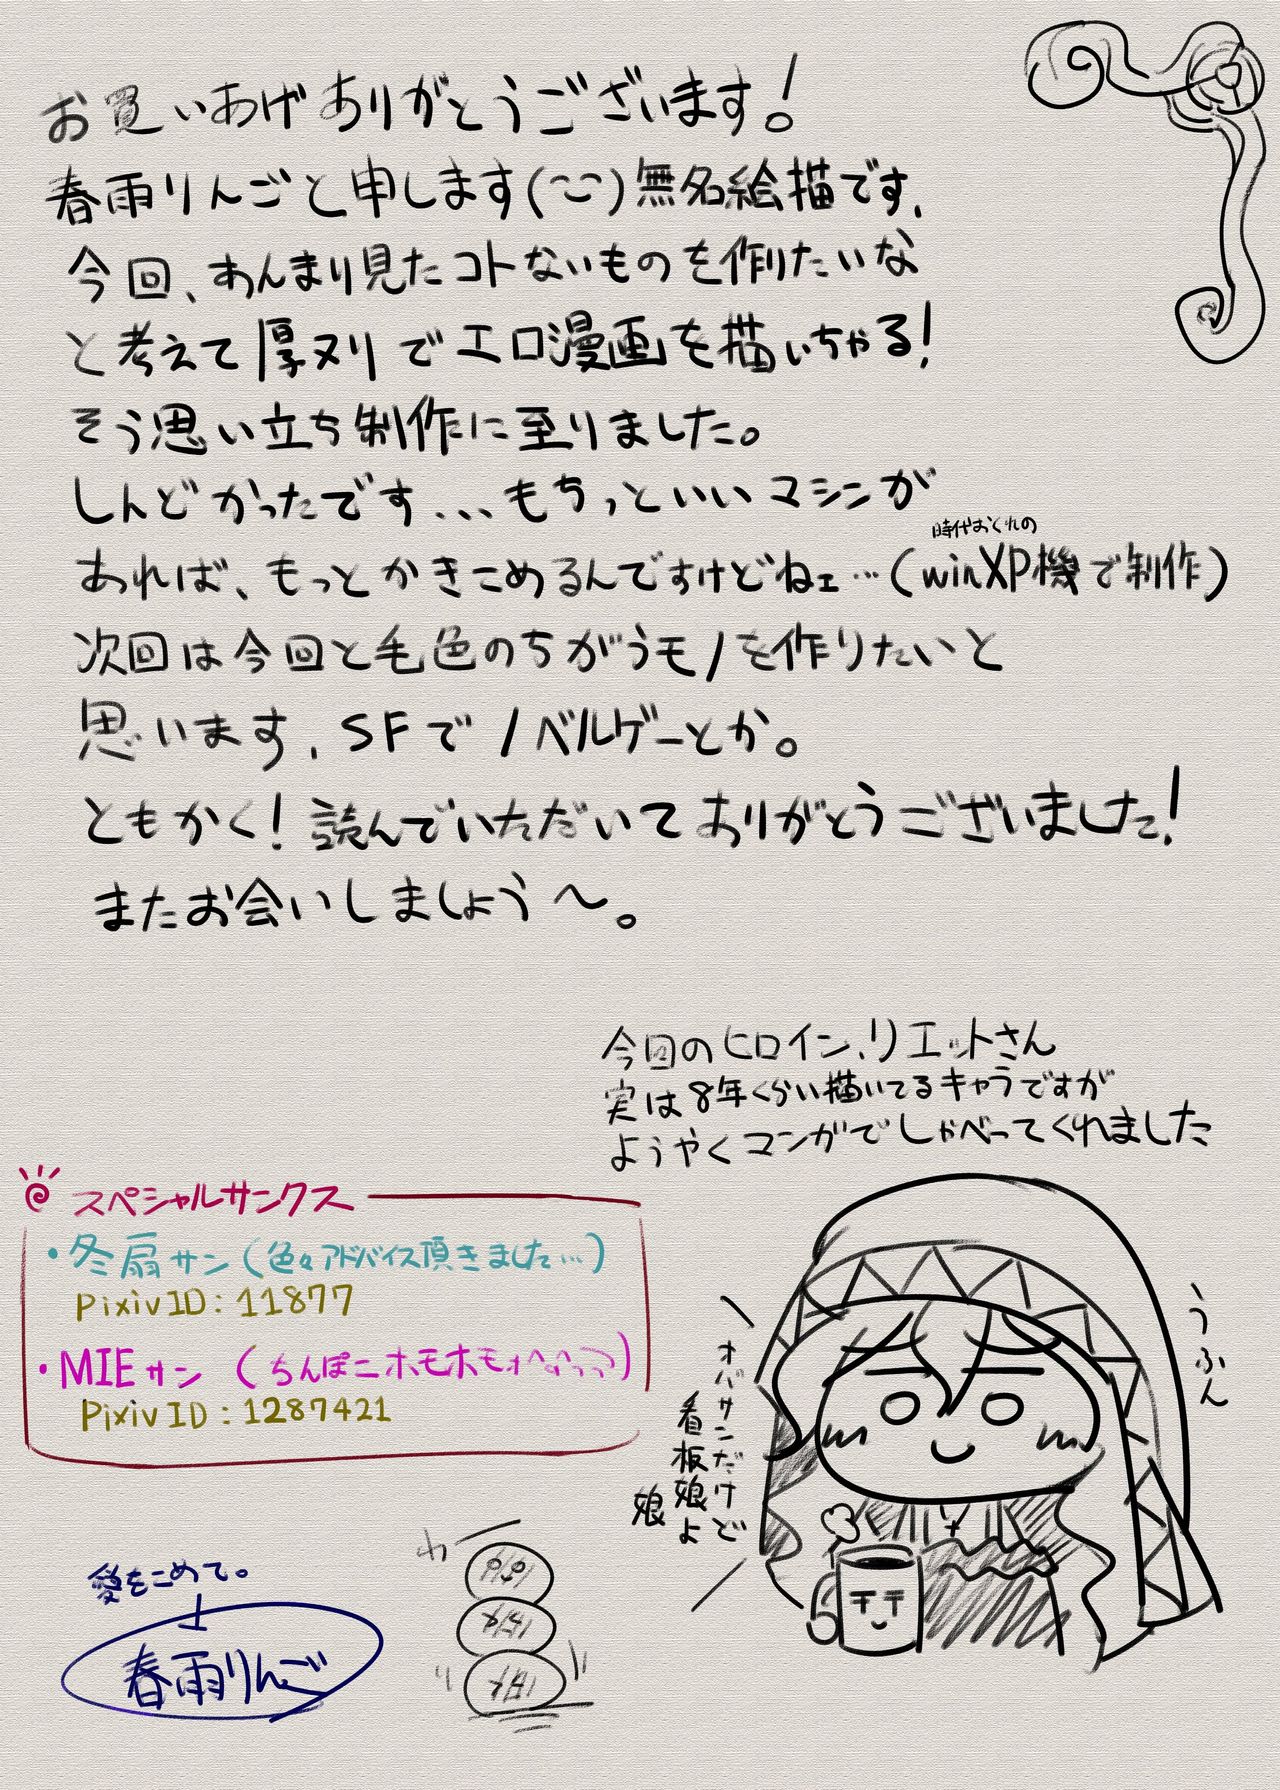 お買いあげありがとうございます!
春雨りんごと申します(^-^)無名絵描です、
今回、あんまり見たコトないものを作りたいな
と考えて厚ヌリでエロ漫画を描いちゃる!
そう思い立ち制作に至りました。
しんどかったです...もちっといいマシンが
あれば、もっとかきこめるんですけどねェ…(時代おくれのwinXP機で制作)
次回は今回と毛色のちがうモノを作りたいと
思います、SFでノベルゲーとか。
ともかく!読んでいただいてありがとうございました!
またお会いしましょう〜。
今回のヒロイン、リエットさん
実は8年くらい描いてるキャラですが
ようやくマンガでしゃべってくれました
スペシャルサンクス
・冬扇サン(色々アドバイス頂きました…)
pixivID:11877
・MIEサン(ちんぽこホモホモ
PixivID:1287421
うふん
オバサンだけど
看板娘よ
娘
愛をこめて。
春雨りんご